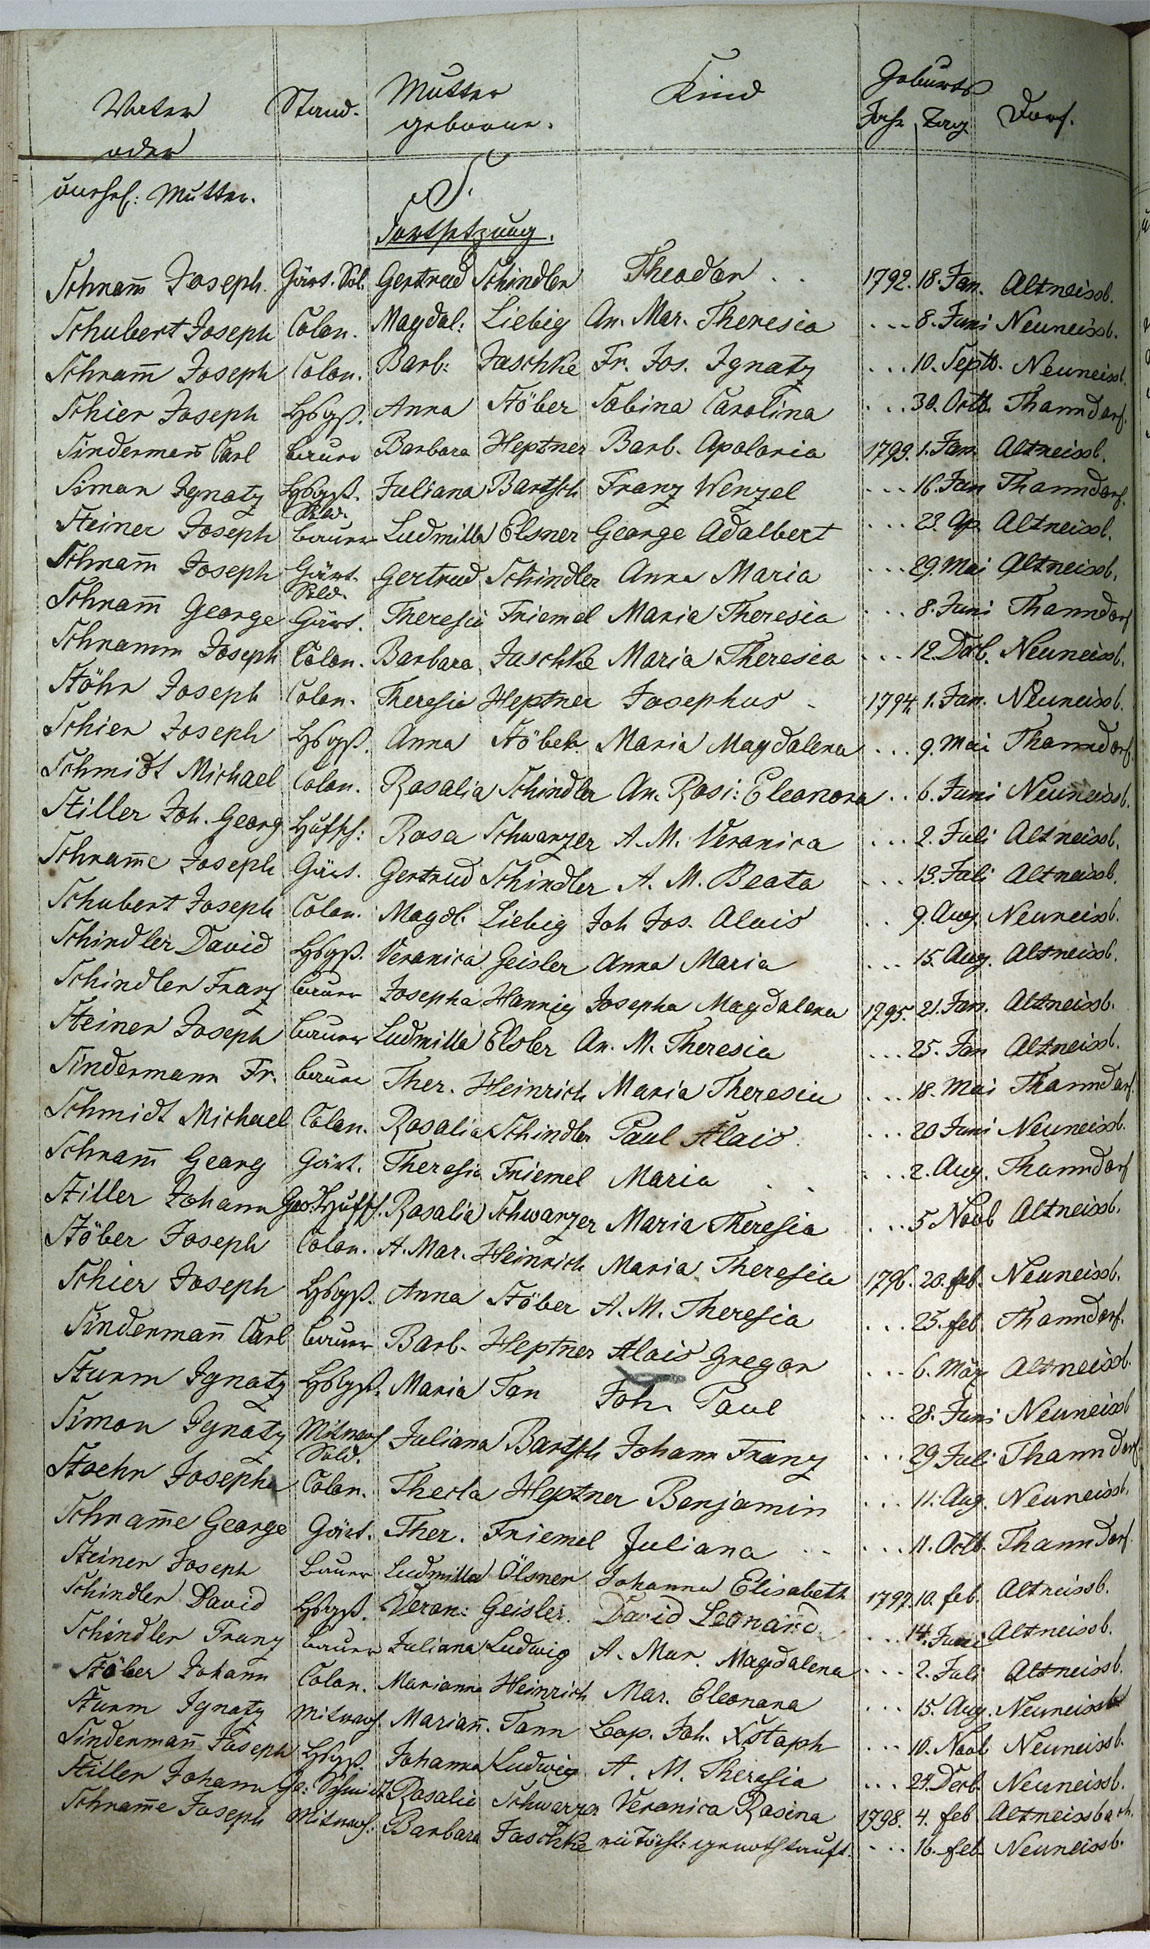 Vater Stand. Mutter Kind Geburts Dorf.
oder geborne. Jahr Tag
unehel: Mutter.
S.
Fortsetzung.
Schram̄ Joseph Gärt. Sol. Gertrud Schindler Theodor . . 1792. 18. Jan. Altneissb.
Schubert Joseph Colon. Magdal: Liebig An. Mar. Theresia . . . 8. Juni Neuneissb.
Schram̄ Joseph Colon. Barb: Jaschke Fr. Jos. Ignatz . . . 10. Septb. Neuneissb.
Schier Joseph Hsbgß. Anna Stöber Sabina Carolina . . . 30. Octb. Thanndorf.
Sinderman̄ Carl Bauer Barbara Heptner Barb. Apolonia 1793. 1. Jan. Altneissb.
Simon Ignatz Hsbgß. Juliana Bartsch Franz Wenzel . . . 16. Jan Thanndorf.
Steiner Joseph Sold. Bauer Ludmilla Elsner George Adalbert . . . 23. Ap. Altneissb.
Schram̄ Joseph Gärt. Gertrud Schindler Anna Maria . . . 29. Mai Altneissb.
Schram̄ George Sold. Gärt. Theresia Friemel Maria Theresia . . . 8. Juni Thanndorf
Schramm Joseph Colon. Barbara Jaschke Maria Theresia . . . 12. Decb. Neuneissb.
Stöhr Joseph Colon. Theresia Heptner Josephus - 1794. 1. Jan. Neuneissb.
Schier Joseph Hsbgß. Anna Stöber Maria Magdalena . . . 9. Mai Thanndorf
Schmidt Michael Colon. Rosalia Schindler An. Rosi: Eleonora . . 6. Juni Neuneissb.
Stiller Joh. Georg Hufsch: Rosa Schwarzer A. M. Veronica . . . 2. Juli Altneissb.
Schram̄e Joseph Gärt. Gertrud Schindler A. M. Beata . . . 13. Juli Altneissb.
Schubert Joseph Colon. Magdl. Liebig Joh Jos. Alois . 9. Aug. Neuneissb.
Schindler David Hsbgß. Veronica Geisler Anna Maria . . . 15. Aug. Altneissb.
Schindler Franz Bauer Josepha Hannig Josepha Magdalena 1795 21. Jan. Altneissb.
Steiner Joseph Bauer Ludmilla Elsler An. M. Theresia . . . 25. Jan Altneissb.
Sindermann Fr. Bauer Ther. Heinrich Maria Theresia . . . 18. Mai Thanndorf.
Schmidt Michael Colon. Rosalia Schindler Paul Alois . . . 20 Juni Neuneissb.
Schram̄ Georg Gärt. Theresia Friemel Maria . . . . . 2. Aug. Thanndorf
Stiller Johann Geo. Hufsch. Rosalia Schwarzer Maria Theresia . . . 5 Novb Altneissb.
Stöber Joseph Colon. A. Mar. Heinrich Maria Theresia 1796. 20. feb. Neuneissb.
Schier Joseph Hsbgß. Anna Stöber A. M. Theresia . . . 25. feb. Thanndorf.
Sinderman̄ Carl Bauer Barb. Heptner Alois Gregor . . . 6. März Altneissb.
Sturm Ignatz Hsbgß. Maria Tan Joh. Paul . . . 28. Juni Neuneissb
Simon Ignatz Sold. Juliana Bartsch Johann Franz . . . 29 Juli Thanndorf.
Stoehr Joseph Colon. Thecla Heptner Benjamin . . . 11. Aug. Neuneissb.
Schram̄e George Gärt. Ther. Friemel Juliana . . . . . 11. Octb. Thanndorf.
Steiner Joseph Bauer Ludmilla Ölsner Johanna Elisabeth 1797. 10. feb. Altneissb.
Schindler David Hsbgß. Veron: Geisler. David Leonard . . . 14. Juni Altneissb.
Schindler Franz Bauer Juliana Ludwig A. Mar. Magdalena . . . 2. Juli Altneissb.
Stöber Johann Colon. Marianna Heinrich Mar. Eleonora . . . 15. Aug. Neuneissb
Sturm Ignatz Marian̄. Tann Leop. Joh. Xstoph . . . 10. Novb Neuneissb.
Sinderman̄ Joseph Hsbgß. Johanna Ludwig A. M. Theresia . . . 24. Decb. Neuneissb.
Stiller Johann Ge: Schmidt Rosalia Schwarzer Veronica Rosina 1798. 4. feb Altneissbach.
Schram̄e Joseph Barbara Jaschke ein Töcht: genothtauft. . . . 16. feb. Neuneissb.